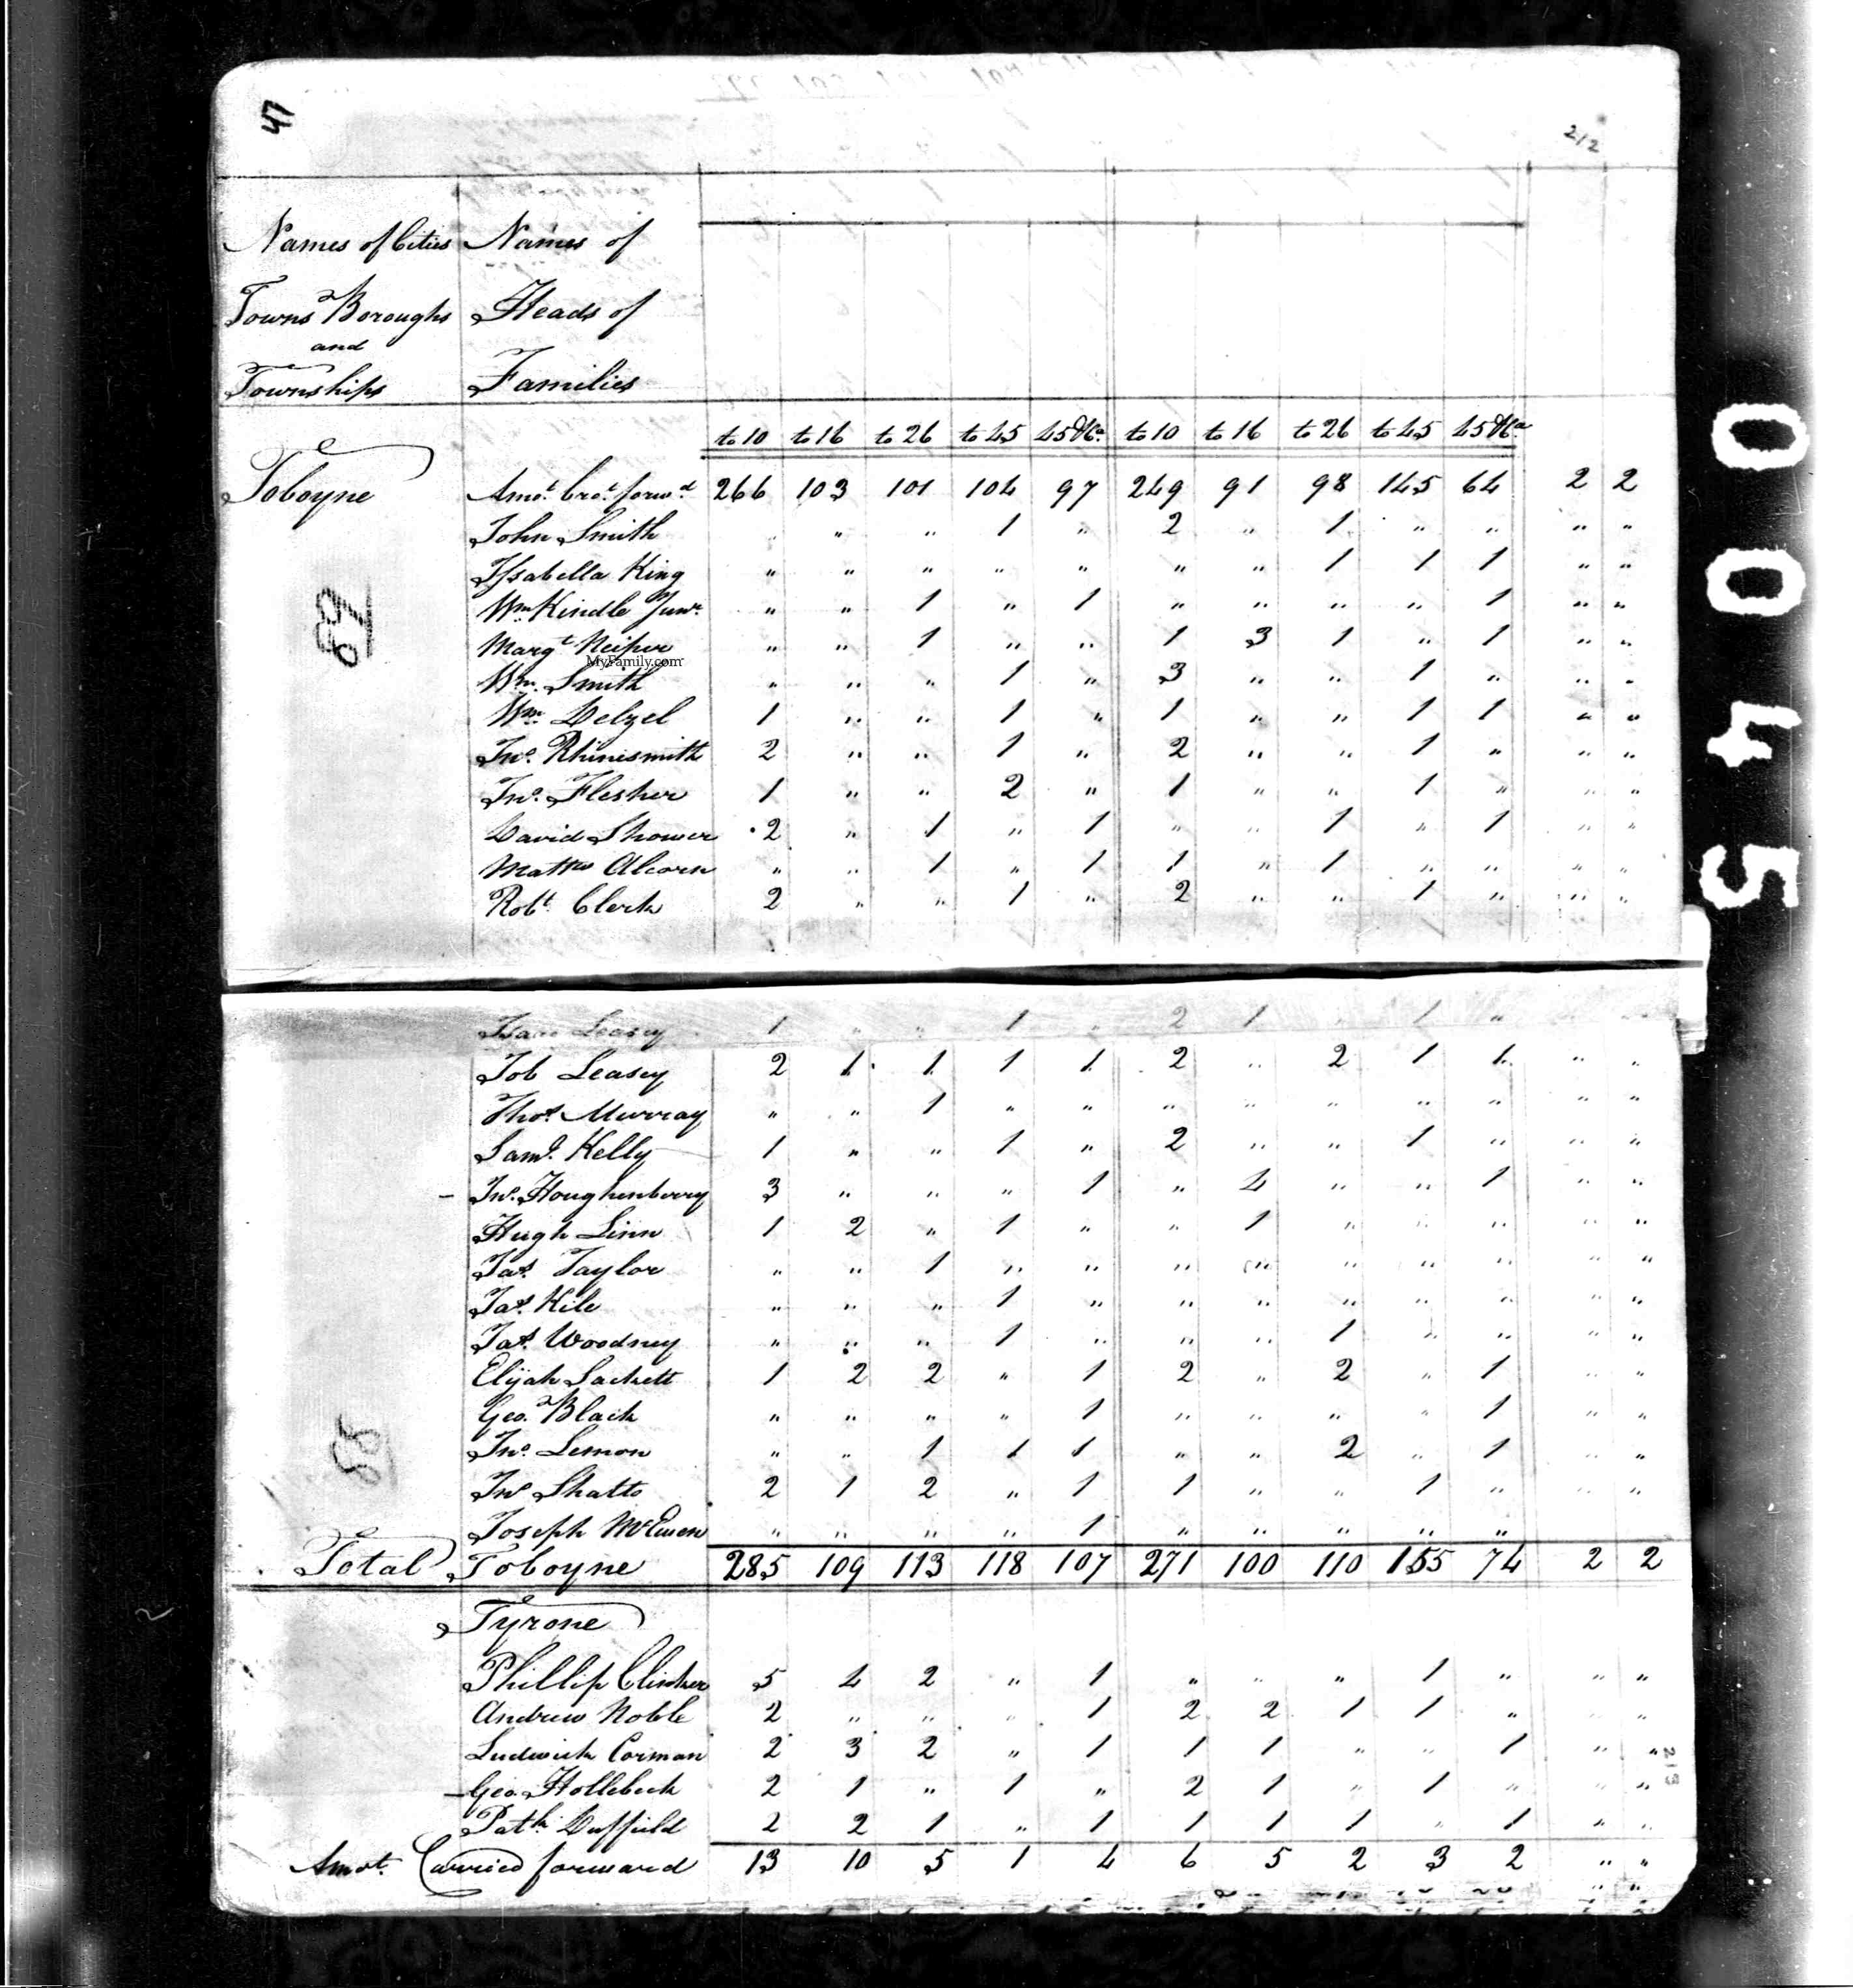 47
212
Names of Cities Names of
Towns Boroughs Heads of
and
Townships Families
to 10 to 16 to 26 to 45 45 &ca. to 10 to 16 to 26 to 45 45 &ca
Toboyne Amot. brot. forwd. 266 103 101 104 97 249 91 98 145 64 2 2
John Smith " " " 1 " 2 " 1 " " " "
Issabella King " " " " " " " 1 1 1 " "
Wm Kindle Junr. " " 1 " 1 " " " " 1 " "
Margt Neiper " " 1 " " 1 3 1 " 1 " "
MyFamily.com
Wm. Smith " " " 1 " 3 " " 1 " " "
Wm. Delzel 1 " " 1 " 1 " " 1 1 " "
Jno. Rhinesmith 2 " " 1 " 2 " " 1 " " "
Jno. Flesher 1 " " 2 " 1 " " 1 " " "
David Shower 2 " 1 " 1 " " 1 " 1 " "
Mattw Alcorn " " 1 " 1 1 " 1 " " " "
Robt. Clerk 2 " " 1 " 2 " " 1 " " "
Isaac Leasey 1 " " 1 " 2 1 " 1 " " "
Job Leasey 2 1 1 1 1 2 " 2 1 1 " "
Thos. Murray " " 1 " " " " " " " " "
Saml. Kelly 1 " " 1 " 2 " " 1 " " "
Jno. Houghenberry 3 " " " 1 " 4 " " 1 " "
Hugh Linn 1 2 " 1 " " 1 " " " " "
Jas. Taylor " " 1 " " " " " " " " "
Jas. Kile " " " 1 " " " " " " " "
Jas. Woodney " " " 1 " " " 1 " " " "
Elijah Sackett 1 2 2 " 1 2 " 2 " 1 " "
Geo. Black " " " " 1 " " " " 1 " "
Jno. Lemon " " 1 1 1 " " 2 " 1 " "
Jno Shatto 2 1 2 " 1 1 " " 1 " " "
Joseph McEwen " " " " 1 " " " " "
Total Toboyne 285 109 113 118 107 271 100 110 155 74 2 2
Tyrone
Phillip Clinker 5 4 2 " 1 " " " 1 " " "
Andrew Noble 2 " " " 1 2 2 1 1 " " "
Ludwick Corman 2 3 2 " 1 1 1 " " 1 " "
Geo. Hollebeck 2 1 " 1 " 2 1 " 1 " " "
Patk. Duffield 2 2 1 " 1 1 1 1 " 1 " "
Amot. Carried forward 13 10 5 1 4 6 5 2 3 2 " "
0045
213